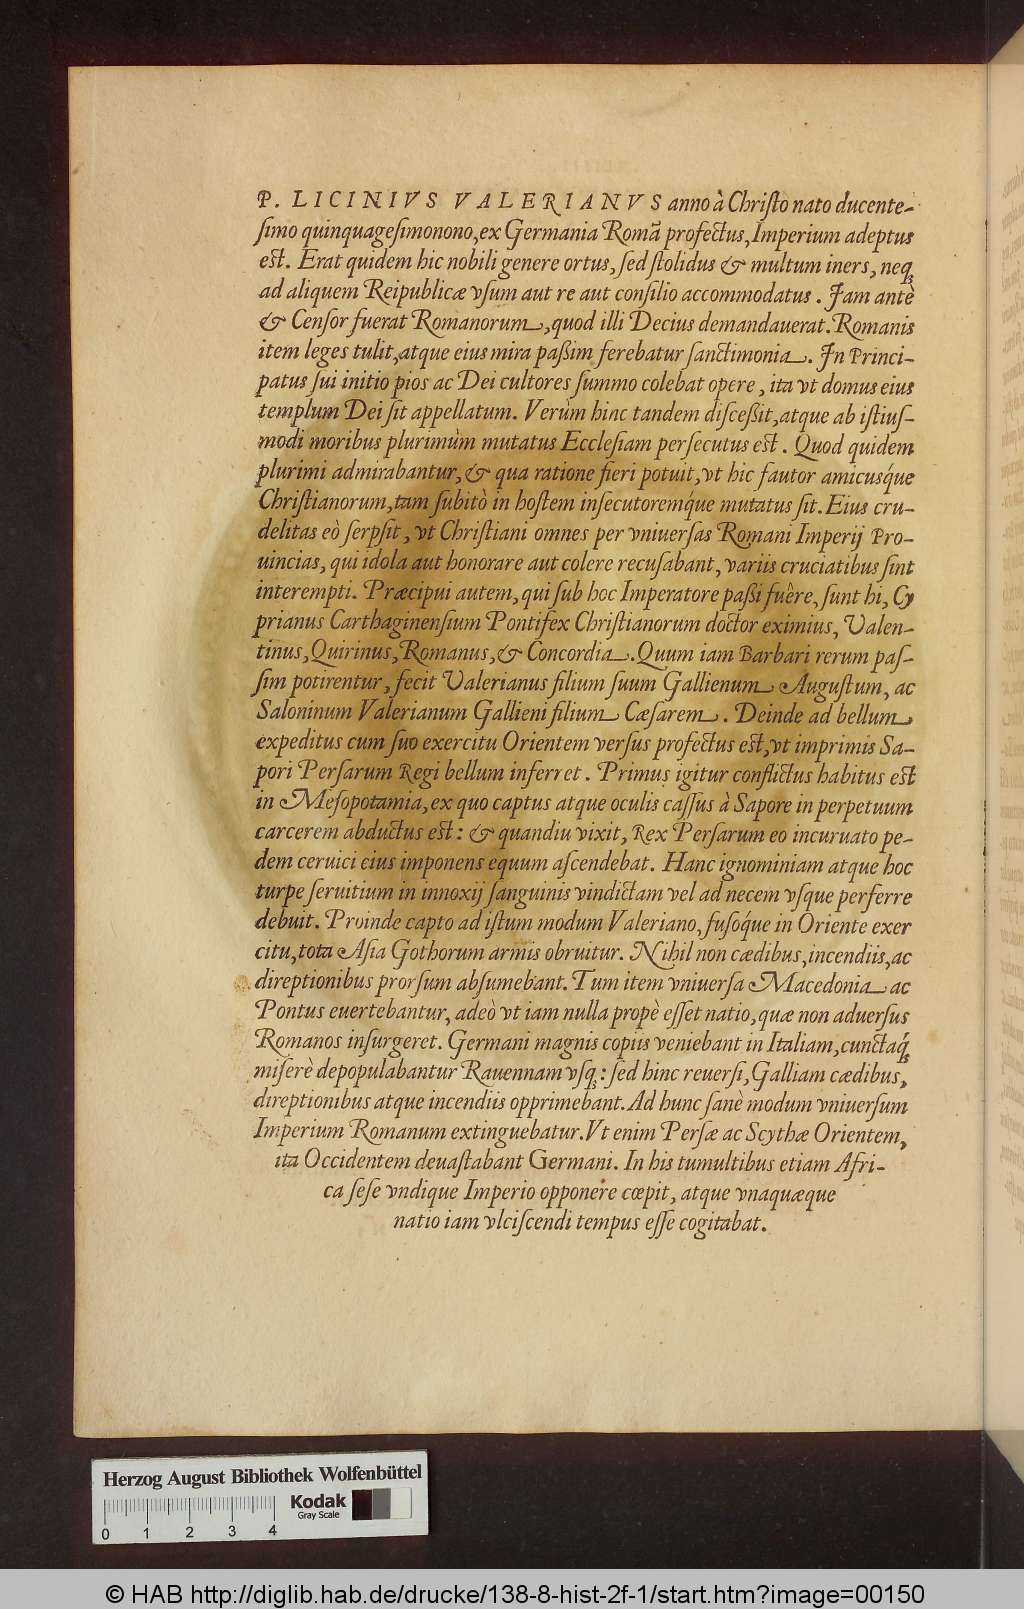 P. LICINIVS VALERIANVS anno à Christo nato ducente-
simo quinquagesimonono, ex Germania Romã profectus, Imperium adeptus
est. Erat quidem hic nobili genere ortus, sed stolidus & multum iners, neq;
ad aliquem Reipublicæ vsum aut re aut consilio accommodatus. Jam antè
& Censor fuerat Romanorum, quod illi Decius demandauerat. Romanis
item leges tulit, atque eius mira paßim ferebatur sanctimonia. Jn Princi-
patus sui initio pios ac Dei cultores summo colebat opere, ita vt domus eius
templum Dei sit appellatum. Verùm hinc tandem disceßit, atque ab istius-
modi moribus plurimùm mutatus Ecclesiam persecutus est. Quod quidem
plurimi admirabantur, & qua ratione fieri potuit, vt hic fautor amicusq́ue
Christianorum, tam subitò in hostem insecutoremq́ue mutatus sit. Eius cru-
delitas eò serpsit, vt Christiani omnes per vniuersas Romani Imperij Pro-
uincias, qui idola aut honorare aut colere recusabant, variis cruciatibus sint
interempti. Præcipui autem, qui sub hoc Imperatore paßi fuêre, sunt hi, Cy
prianus Carthaginensium Pontifex Christianorum doctor eximius, Valen-
tinus, Quirinus, Romanus, & Concordia. Quum iam Barbari rerum pas-
sim potirentur, fecit Valerianus filium suum Gallienum Augustum, ac
Saloninum Valerianum Gallieni filium Cæsarem. Deinde ad bellum
expeditus cum suo exercitu Orientem versus profectus est, vt imprimis Sa-
pori Persarum Regi bellum inferret. Primus igitur conflictus habitus est
in Mesopotamia, ex quo captus atque oculis cassus à Sapore in perpetuum
carcerem abductus est: & quandiu vixit, Rex Persarum eo incuruato pe-
dem ceruici eius imponens equum ascendebat. Hanc ignominiam atque hoc
turpe seruitium in innoxij sanguinis vindictam vel ad necem vsque perferre
debuit. Proinde capto ad istum modum Valeriano, fusoq́ue in Oriente exer
citu, tota Asia Gothorum armis obruitur. Nihil non cædibus, incendiis, ac
direptionibus prorsum absumebant. Tum item vniuersa Macedonia ac
Pontus euertebantur, adeò vt iam nulla propè esset natio, quæ non aduersus
Romanos insurgeret. Germani magnis copiis veniebant in Italiam, cunctaq́;
miserè depopulabantur Rauennam vsq;: sed hinc reuersi, Galliam cædibus,
direptionibus atque incendiis opprimebant. Ad hunc sanè modum vniuersum
Imperium Romanum extinguebatur. Vt enim Persæ ac Scythæ Orientem,
ita Occidentem deuastabant Germani. In his tumultibus etiam Afri-
ca sese vndique Imperio opponere cœpit, atque vnaquæque
natio iam vlciscendi tempus esse cogitabat.
Herzog August Bibliothek Wolfenbüttel
Kodak
Gray Scale
0 1 2 3 4
© HAB http://diglib.hab.de/drucke/138-8-hist-2f-1/start.htm?image=00150